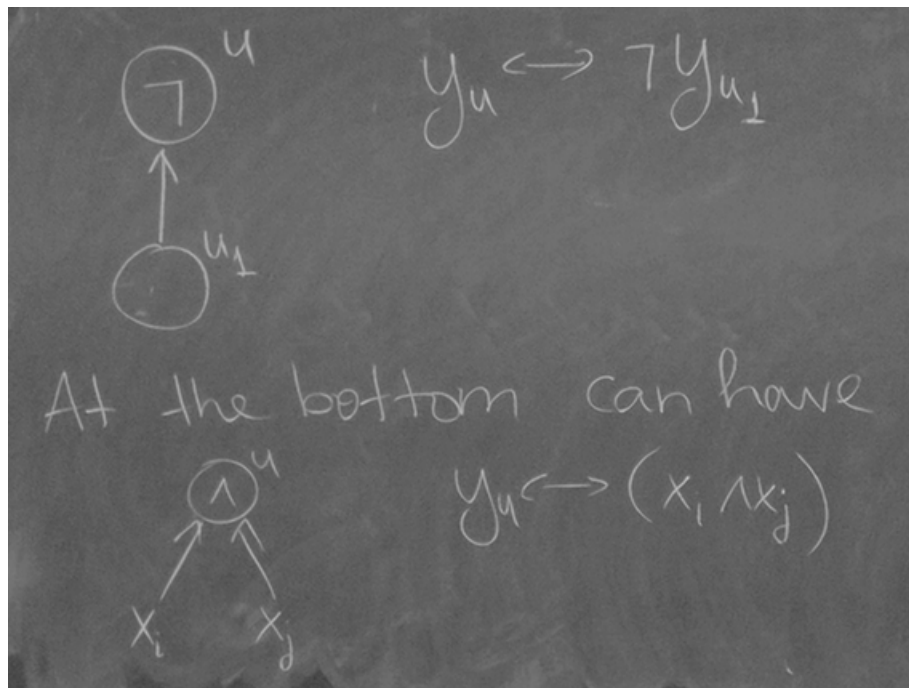 ¬ u y_u ↔ ¬y_{u_1}
u_1
At the bottom can have
∧ u y_u ↔ (x_i ∧ x_j)
x_i x_j